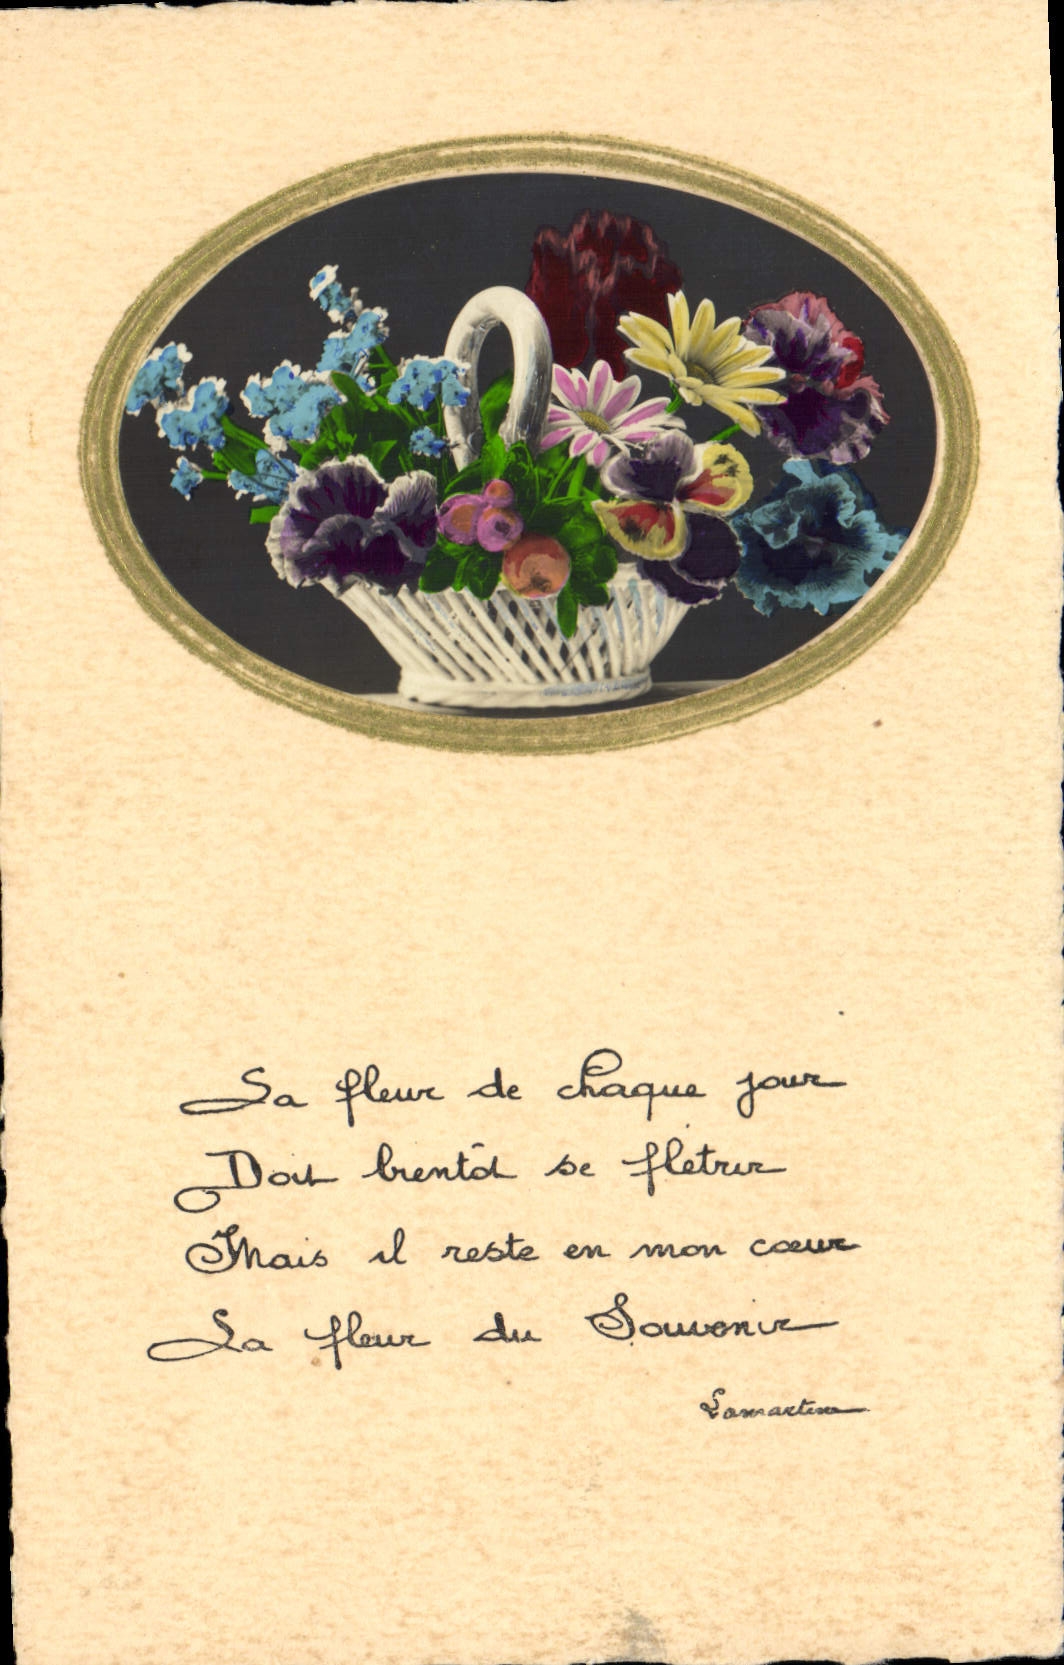 La fleur de chaque jour
Doit bientôt se flétrir
Mais il reste en mon cœur
La fleur du Souvenir
Lamartine